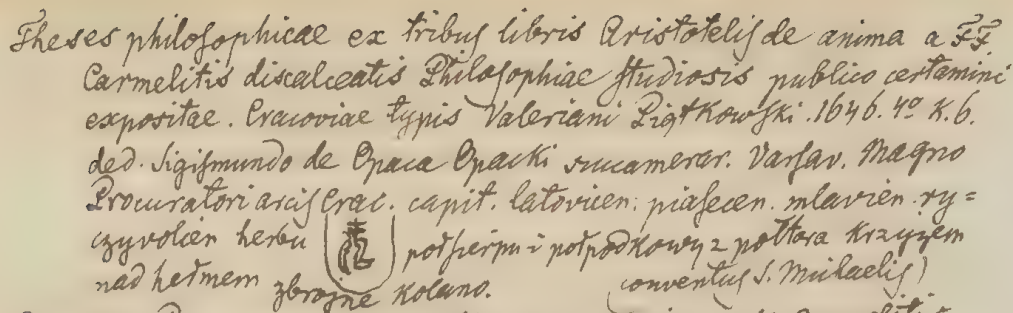 Theses philosophicae ex tribus libris Aristotelis de anima a FF.
Carmelitis discalceatis Philosophiae studiosis publico certamini
expositae. Cracoviae typis Valeriani Piątkowski. 1646. 4º k. 6.
ded. Sigismundo de Opaca Opacki succamerar. Varsav. Magno
Procuratori arcis Crac. capit. latovicen: piasecen. mlavien. ry=
czyvolien herbu półsierpu i półpodkowy z półtora krzyżem
nad hełmem zbrojne kolano. conventus S. Michaelis)